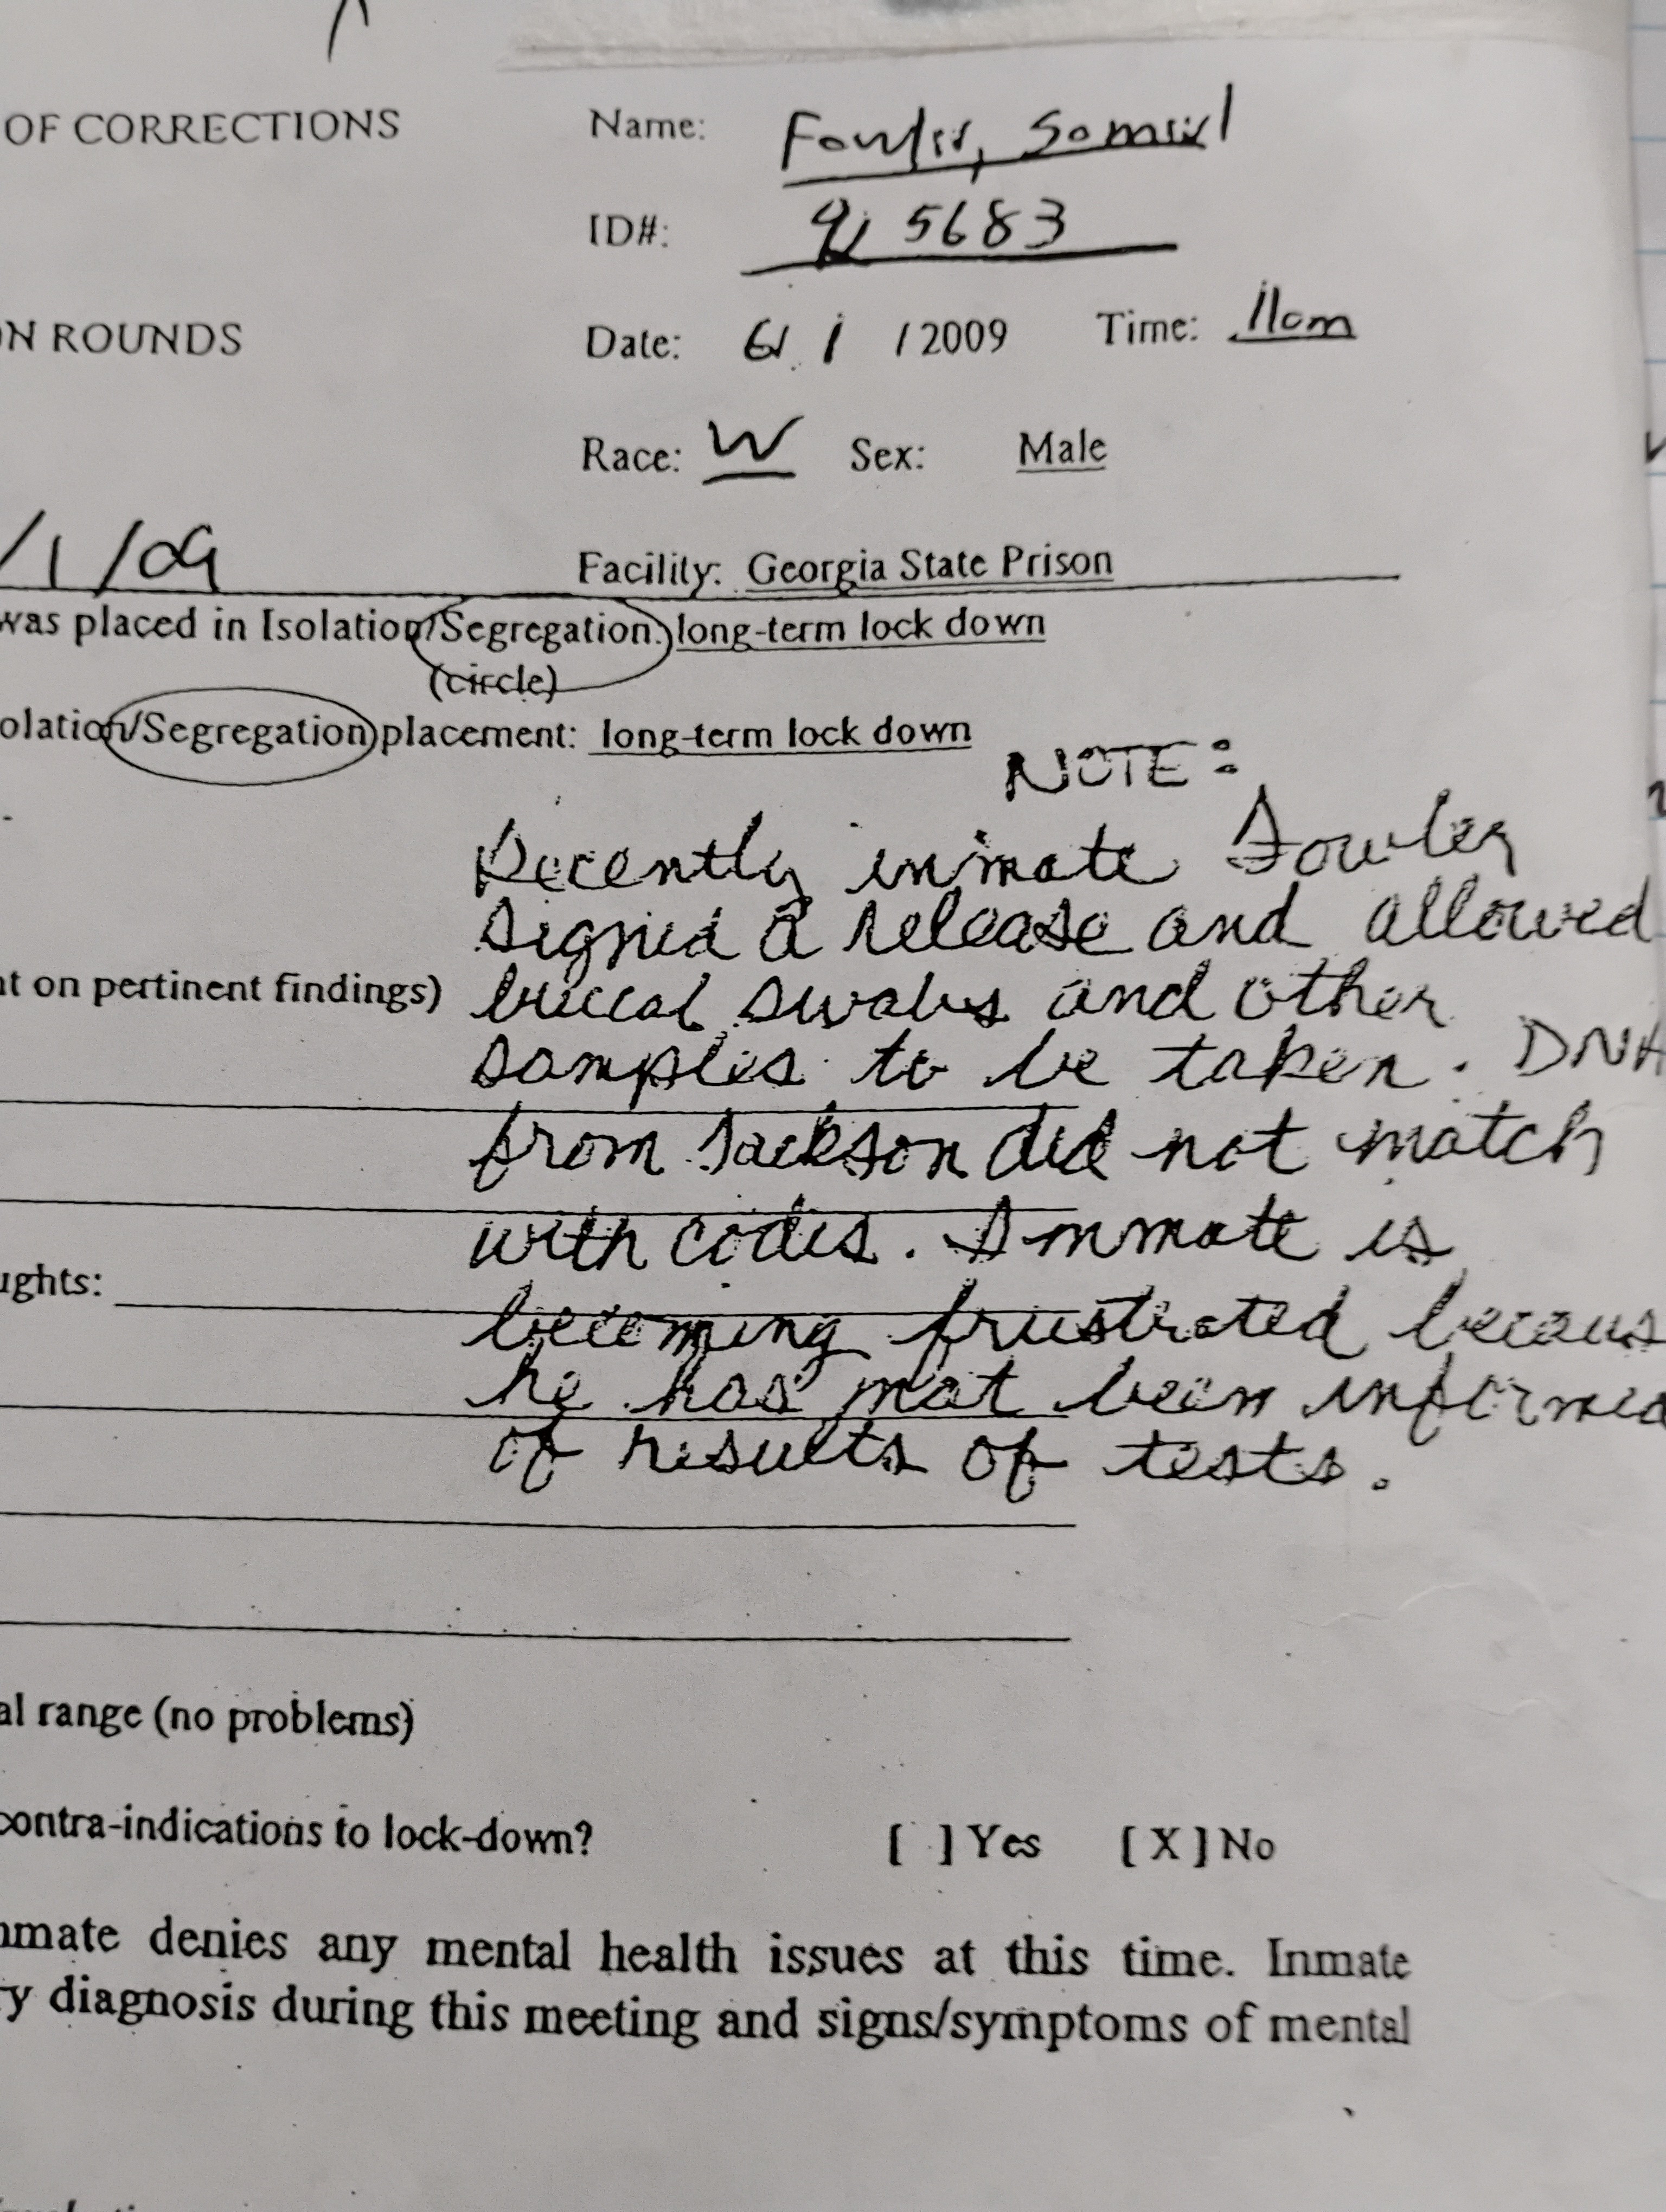 OF CORRECTIONS
Name: Fowler, Samuel
ID#: 5683
N ROUNDS
Date: 6/ 1 / 2009 Time: 11am
Race: W Sex: Male
/1/09
Facility: Georgia State Prison
was placed in Isolation/Segregation: long-term lock down
(circle)
olation/Segregation placement: long-term lock down
NOTE:
Recently inmate Fowler
signed a release and allowed
buccal swabs and other
t on pertinent findings)
samples to be taken. DNA
from Jackson did not match
with codis. Inmate is
ughts:
becoming frustrated becaus
he has not been informed
of results of tests.
al range (no problems)
contra-indications to lock-down? [ ] Yes [ X ] No
nmate denies any mental health issues at this time. Inmate
ry diagnosis during this meeting and signs/symptoms of mental